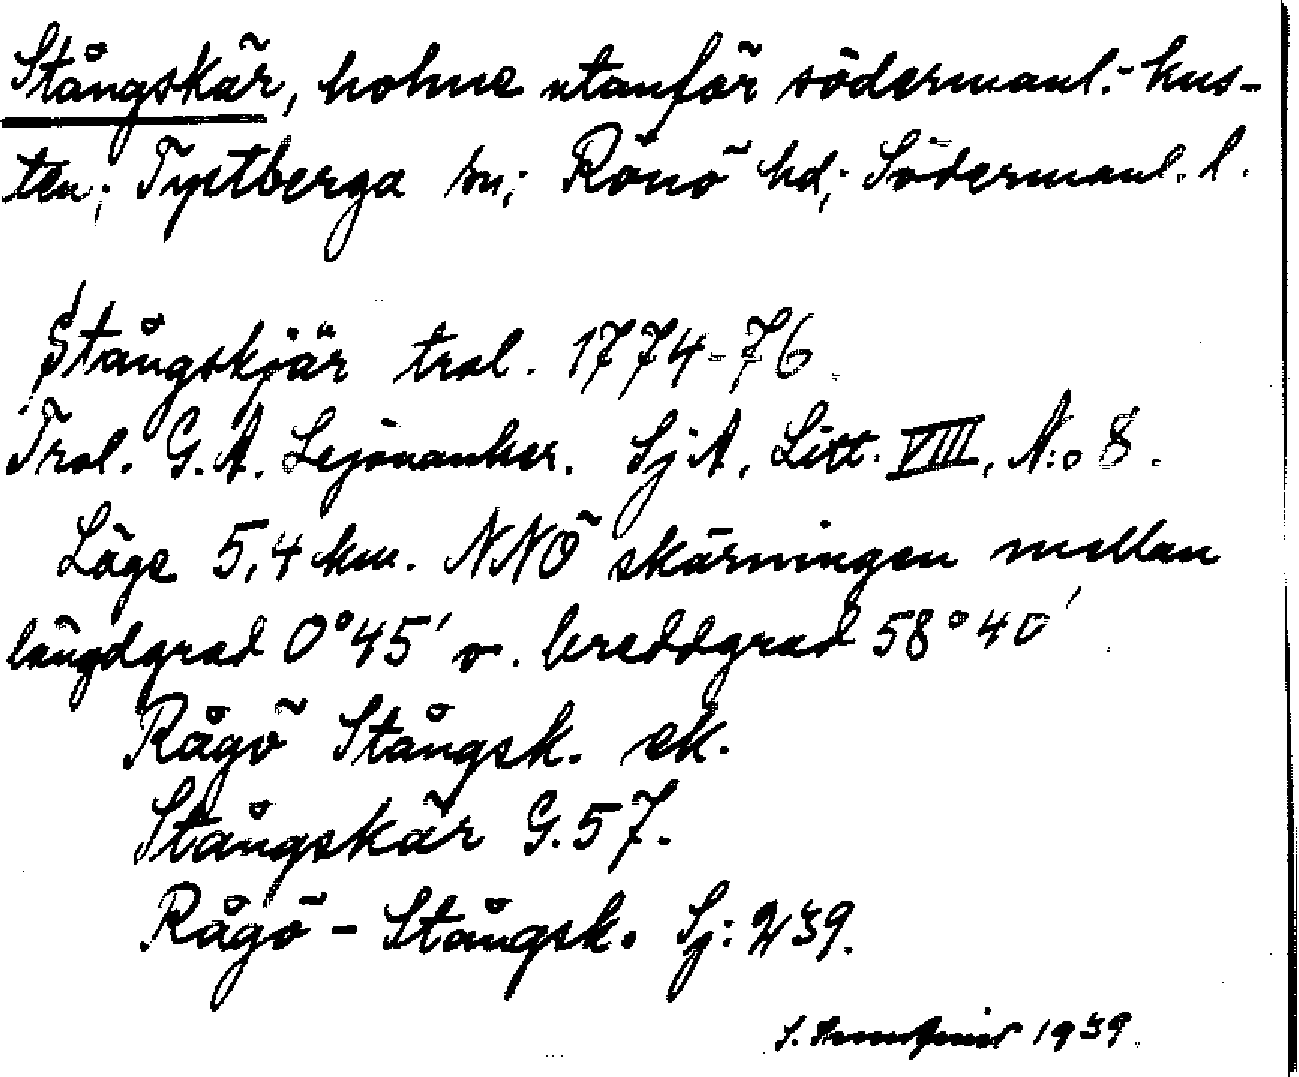 Stångskär, holme utanför södermanl.- kus-
ten; Tystberga sn; Rönö hd; Södermanl. l.
Stångskjär trol. 1774-76.
Trol. G. A. Lejonanker. SjA, Litt. VIII, N:o 8.
Läge 5,4 km. NNÖ skärningen mellan
längdgrad 0°45' o. breddgrad 58°40'
Rågö Stångsk. ek.
Stångskär G. 57.
Rågö - Stångsk. Sj: 239.
S. 1939.